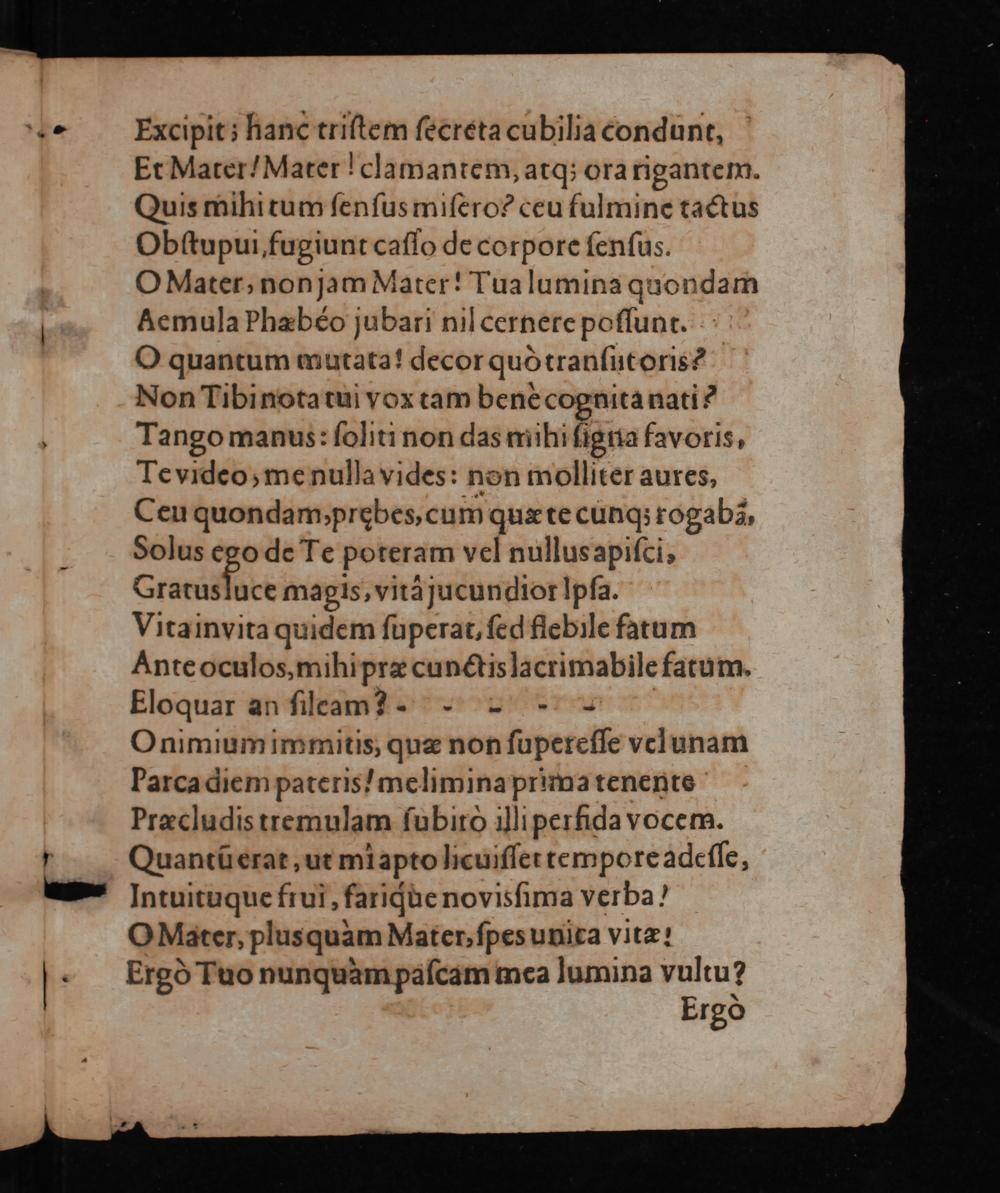 Excipit; hanc triſtem ſecreta cubilia condunt,
Et Mater! Mater! clamantem, atq; ora rigantem.
Quis mihi tum ſenſus miſero? ceu fulmine tactus
Obſtupui, fugiunt caſſo de corpore ſenſus.
O Mater, non jam Mater! Tua lumina quondam
Aemula Phæbéo jubari nil cernere poſſunt.
O quantum mutata! decor quò tranſiit oris?
Non Tibi nota tui vox tam benè cognita nati?
Tango manus: ſoliti non das mihi ſigna favoris,
Te video, me nulla vides: non molliter aures,
Ceu quondam, prębes, cum quæ te cunq; rogabā,
Solus ego de Te poteram vel nullus apiſci,
Gratus luce magis, vitâ jucundior Ipſa.
Vita invita quidem ſuperat, ſed flebile fatum
Ante oculos, mihi præ cunctis lacrimabile fatum.
Eloquar an ſileam? - - - - -
O nimium immitis, quæ non ſupereſſe vel unam
Parca diem pateris! me limina prima tenente
Præcludis tremulam ſubitò illi perfida vocem.
Quantū erat, ut mî apto licuiſſet tempore adeſſe,
Intuituque frui, farique novisſima verba!
O Mater, plusquàm Mater, ſpes unica vitæ!
Ergò Tuo nunquàm paſcam mea lumina vultu?
Ergò